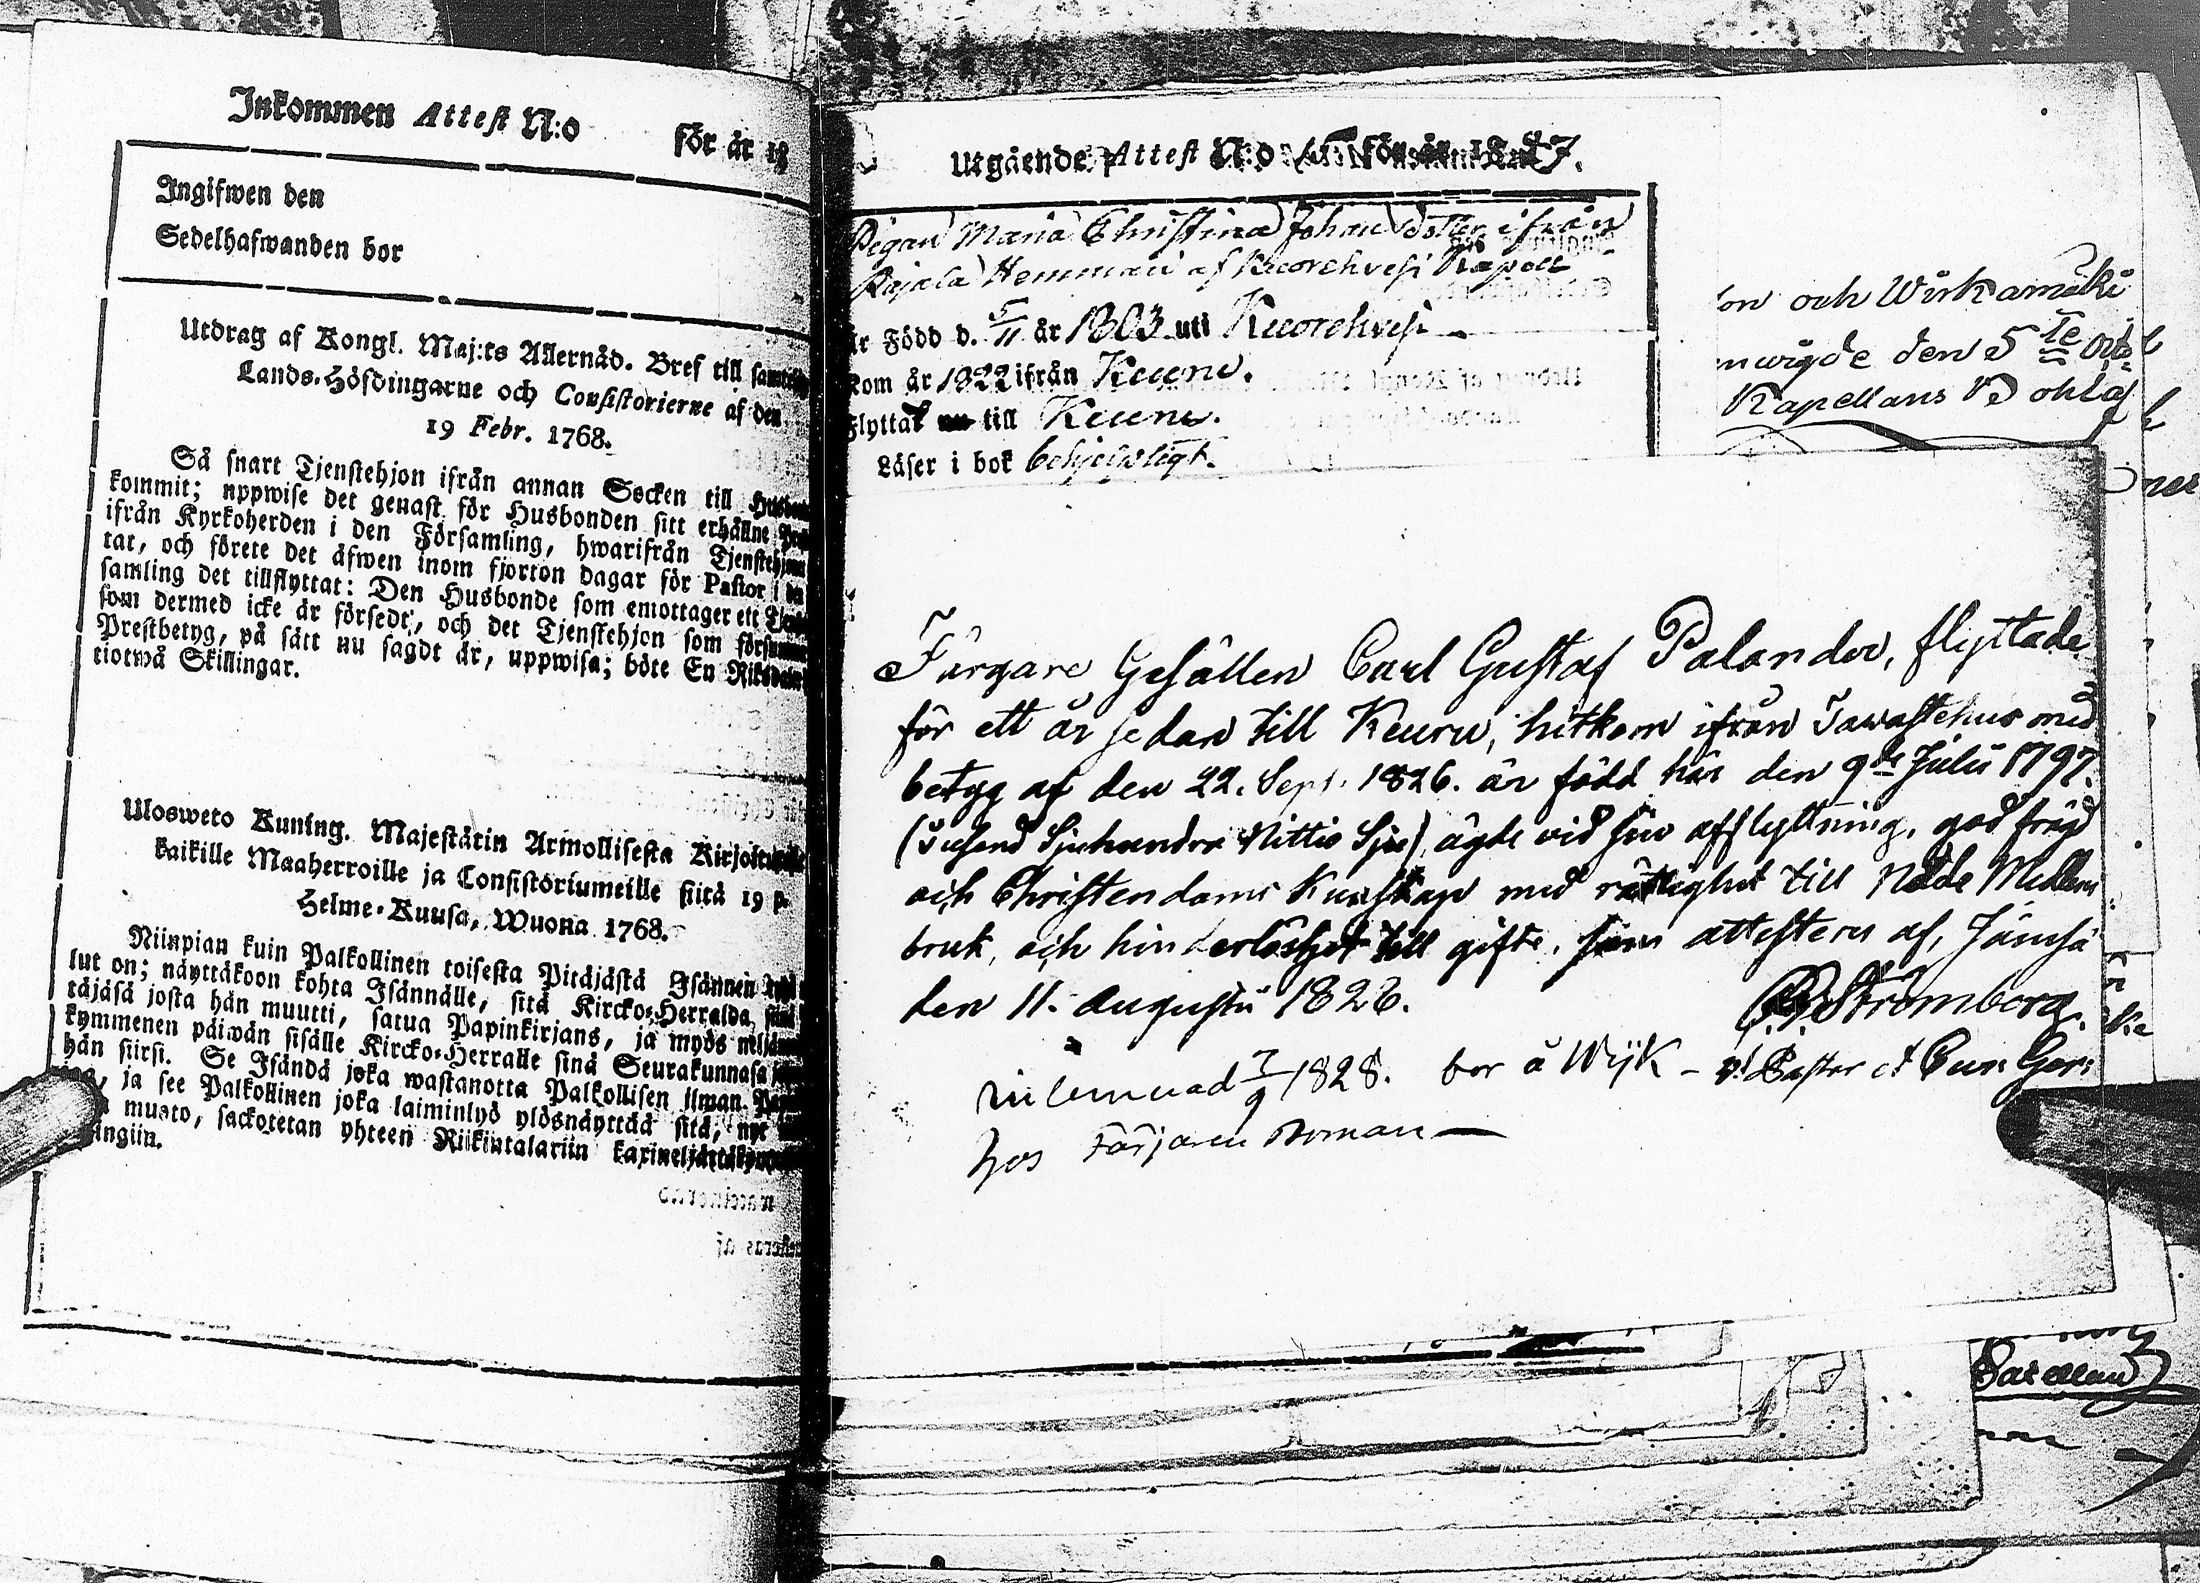 Inkommen Attest N:o för år 18
Ingifwen den
Sedelhafwanden bor
Utdrag af Kongl. Maj:ts Allernåd. Bref till
Lands-Höfdingarne och Consistorierne af den
19 Febr. 1768.
Så snart Tjenstehjon ifrån annan Socken till
kommit; uppwise det genast för Husbonden sitt erhållne
ifrån Kyrkoherden i den Församling, hwarifrån
tat, och förete det äfwen inom fjorton dagar för Pastor i
samling det tillflyttat: Den Husbonde som emottager ett
som dermed icke är försedt, och det Tjenstehjon som
Prestbetyg, på sätt nu sagdt är, uppwisa; böte En
tiotwå Skillingar.
Ulosweto Kuning. Majestätin Armollisesta
kaikille Maaherroille ja Consistoriumeille siitä 19 p.
Helme-Kuusa, Wuona 1768.
Niinpian kuin Palkollinen toisesta Pitäjästä Isännen
lut on; näyttäkoon kohta Isännälle, sitä Kircko-Herralda,
täjäsä josta hän muutti, saatua Papinkirjans, ja myös
kymmenen päiwän sisälle Kircko-Herralle sinä Seurakunnasa
hän siirsi. Se Isändä joka wastanotta Palkollisen ilman
ja see Palkollinen joka laiminlyö ylösnäyttää sitä, nyt
muoto, sackotetan yhteen Riikintalariin
ingiin.
Utgående Attest N:o för år 1827.
Pigan Maria Christina Johansdotter ifrån
Rajala Hemman af Kuorehvesi Kapell
är Född d. 5/11 år 1803 uti Kuorehvesi
Kom år 1822 ifrån Keuru.
Flyttat till Keuru.
Läser i bok behjelpligt.
och Wirkamäki
den 5te Oct
Kapellans Bohlaf
Färgare Gesällen Carl Gustaf Palander, flyttade
för ett år sedan till Keuru, hitkom ifrån Tawastehus med
betyg af den 22. Sept. 1826. är född här den 9de Julii 1797.
(Tusend Sjuhundra Nittio Sju), ägde vid sin afflyttning, god frägd
och Christendoms Kunskap med rättighet till Nådde Medlens
bruk, och hinderlöshet till gifte, som attesteras af, Jämsä
den 11. Augusti 1828.
Strömberg.
inlemnad 7/9 1828. bor å Wijk – v. Pastor et Cur. Ger:
hos Färjaren Roman —